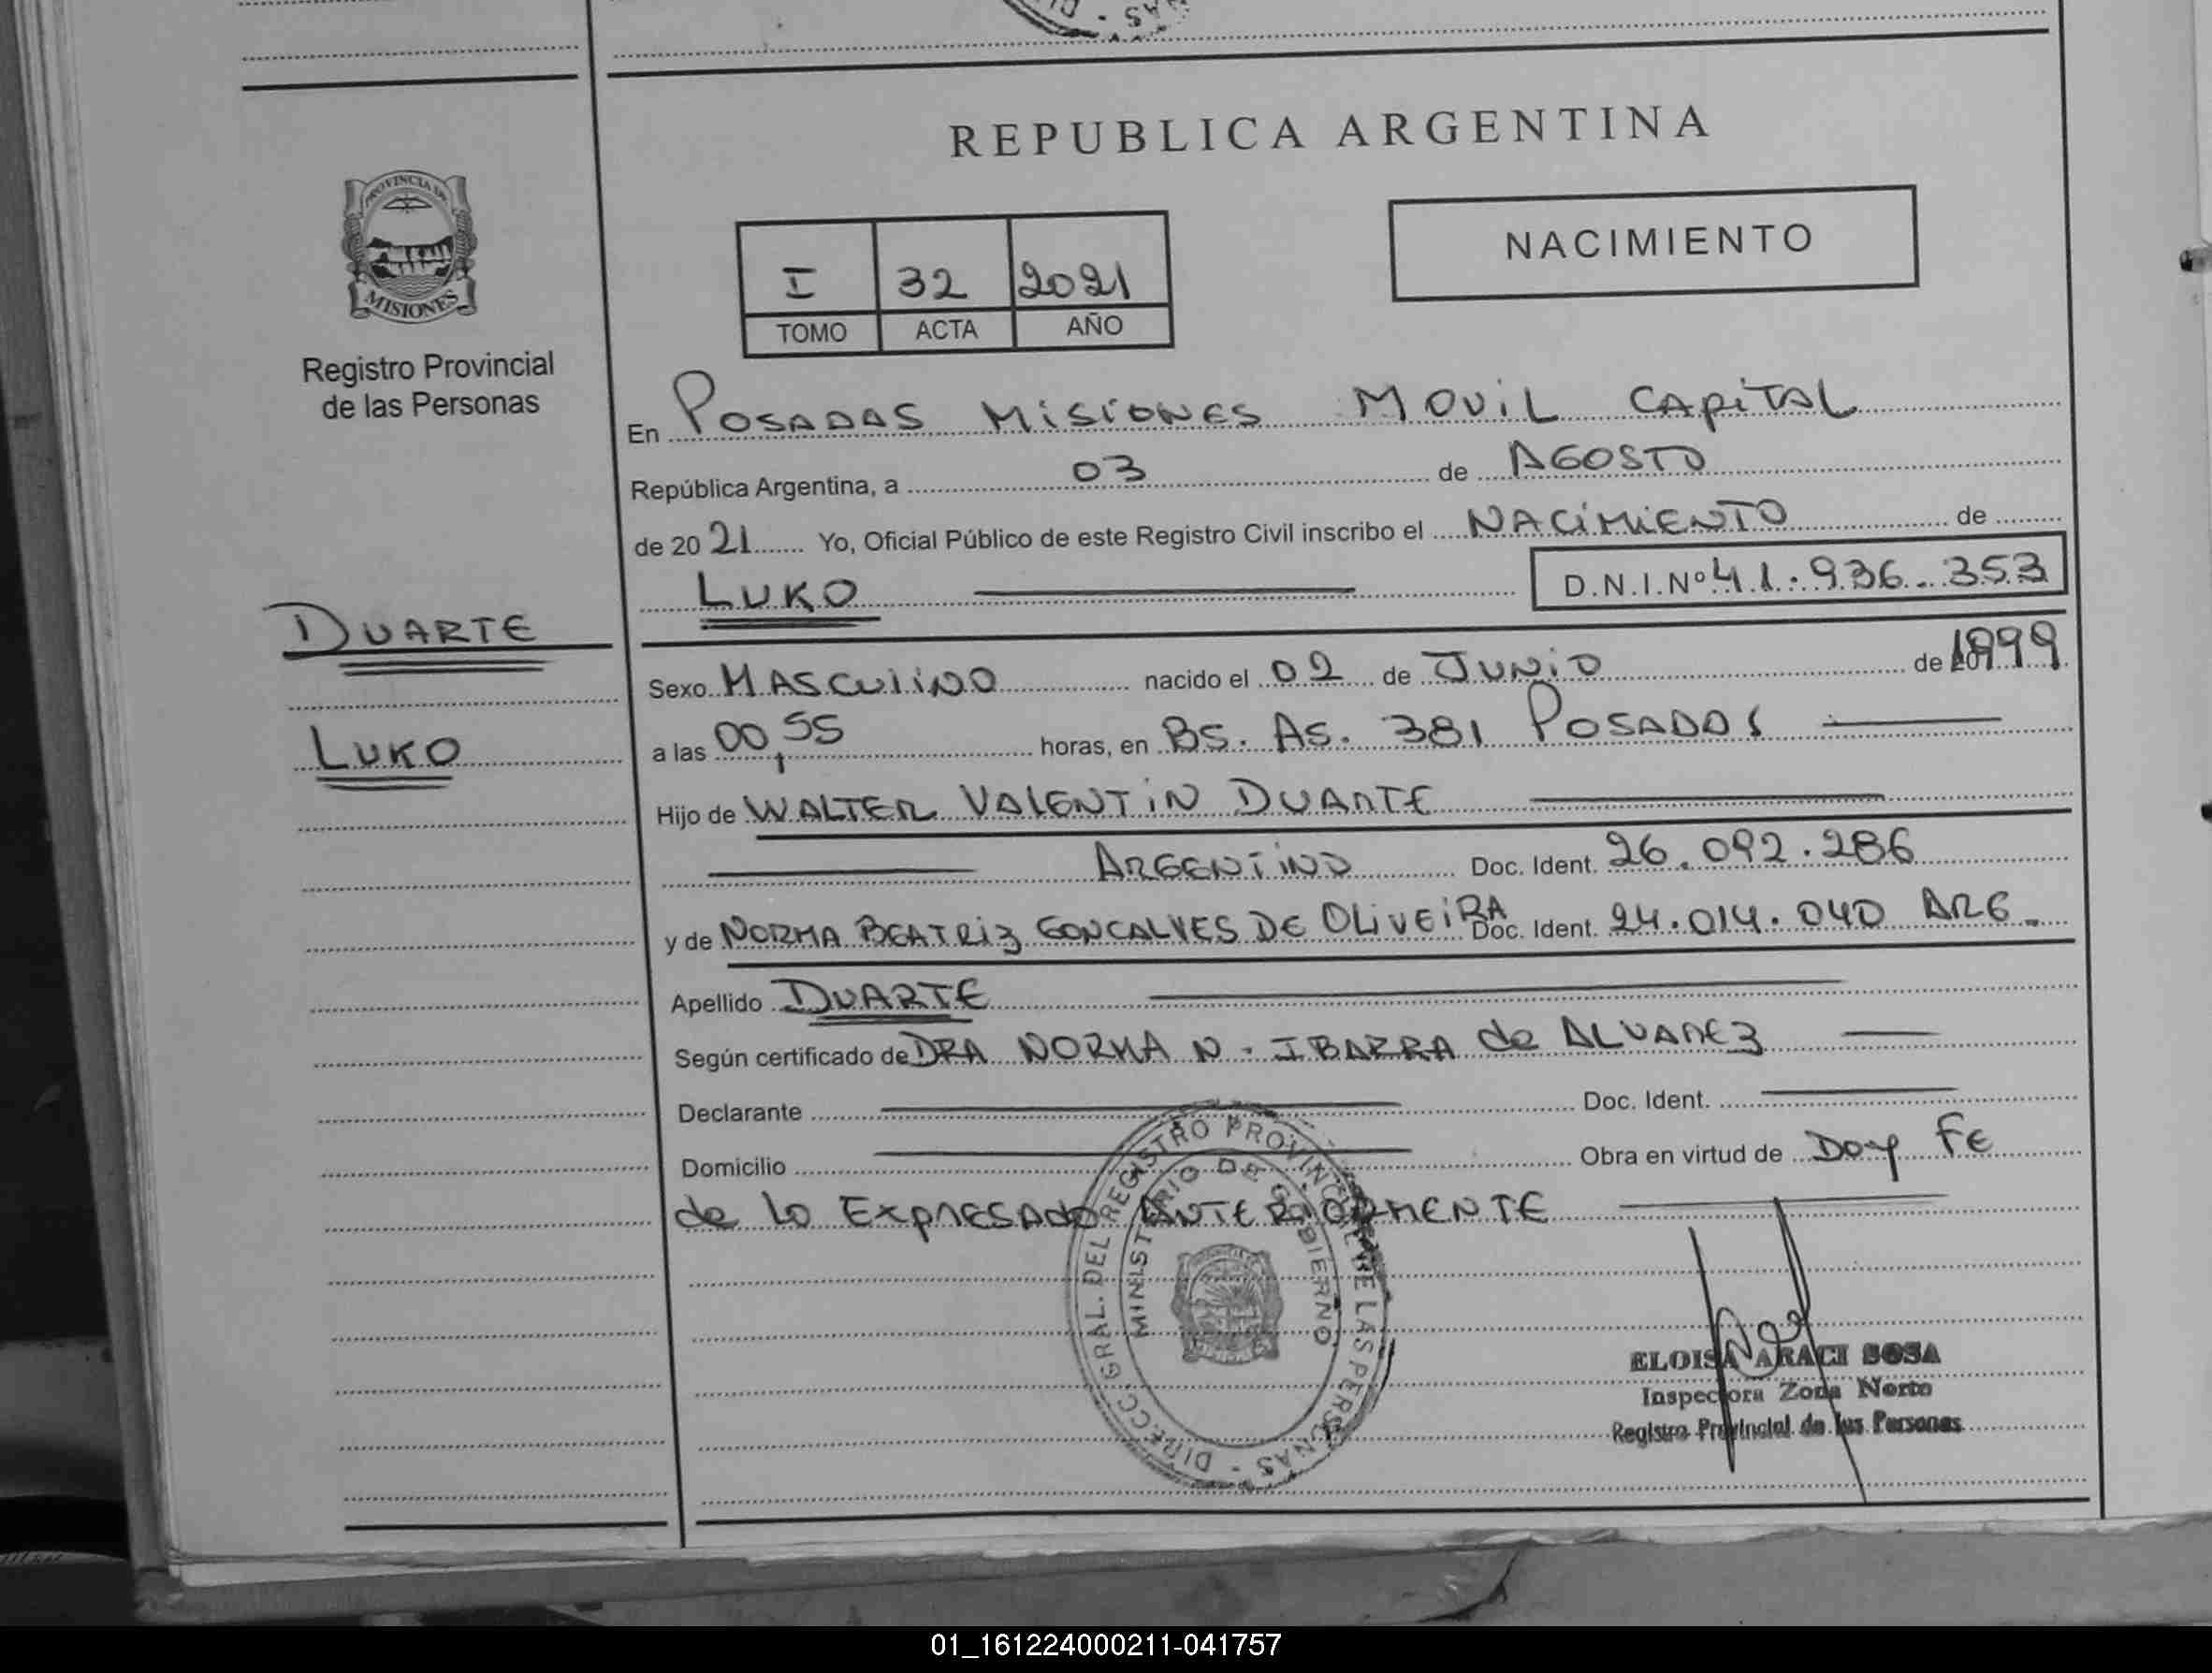 REPUBLICA ARGENTINA
PROVINCIA DE
MISIONES
Registro Provincial
de las Personas
NACIMIENTO
I 32 2021
TOMO ACTA AÑO
En POSADAS MISIONES MOVIL CAPITAL
República Argentina, a 03 de AGOSTO
de 20 21 Yo, Oficial Público de este Registro Civil inscribo el NACIMIENTO de
LUKO D.N.I.Nº 41.936.353
DUARTE
LUKO
Sexo MASCULINO nacido el 02 de JUNIO de 1999
a las 00,55 horas, en BS. AS. 381 POSADAS
Hijo de WALTER VALENTIN DUARTE
ARGENTINO Doc. Ident. 26.092.286
y de NORMA BEATRIZ GONCALVES DE OLIVEIRA Doc. Ident. 24.014.040 ARG.
Apellido DUARTE
Según certificado de DRA NORMA N. IBARRA de ALVAREZ
Declarante Doc. Ident.
Domicilio Obra en virtud de Doy FE
de lo EXPRESADO ANTERIORMENTE
DIRECC. GRAL. DEL REGISTRO PROVINCIAL DE LAS PERSONAS -
MINISTERIO DE GOBIERNO
ELOISA ARACI SOSA
Inspectora Zona Norte
Registro Provincial de las Personas
01_161224000211-041757